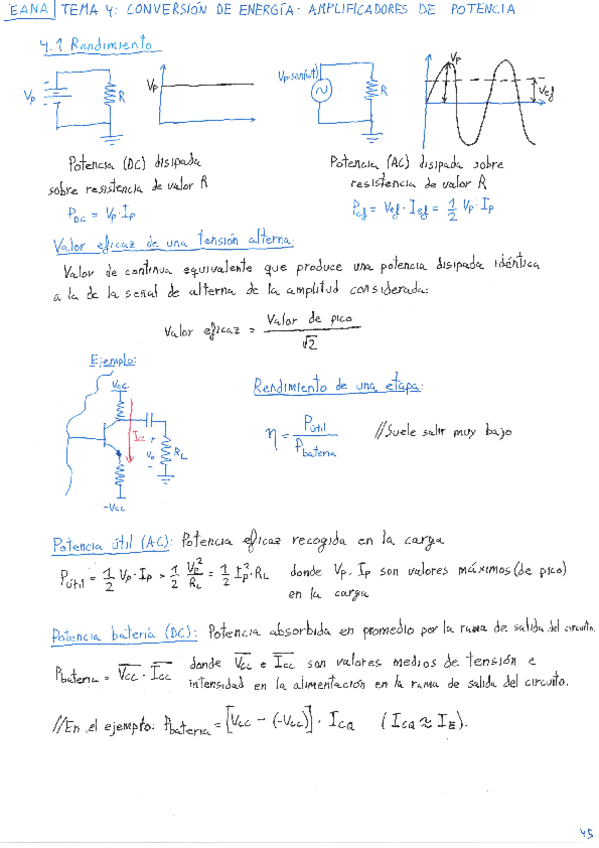 EANA TEMA 4: CONVERSIÓN DE ENERGÍA. AMPLIFICADORES DE POTENCIA
4.1 Rendimiento
Vp R Vp
Vp·sen(ωt) R Vp Vef
Potencia (DC) disipada
sobre resistencia de valor R
P_DC = Vp·Ip
Potencia (AC) disipada sobre
resistencia de valor R
Pef = Vef·Ief = 1/2 Vp·Ip
Valor eficaz de una tensión alterna:
Valor de continua equivalente que produce una potencia disipada idéntica
a la de la señal de alterna de la amplitud considerada:
Valor eficaz = Valor de pico / √2
Ejemplo:
Vcc
Icc + Vo - RL
-Vcc
Rendimiento de una etapa:
η = Pútil / Pbateria //Suele salir muy bajo
Potencia útil (AC): Potencia eficaz recogida en la carga
Pútil = 1/2 Vp·Ip = 1/2 Vp²/RL = 1/2 Ip²·RL donde Vp, Ip son valores máximos (de pico)
en la carga
Potencia batería (DC): Potencia absorbida en promedio por la rama de salida del circuito.
Pbateria = V̅c̅c̅ · I̅c̅c̅ donde V̅c̅c̅ e I̅c̅c̅ son valores medios de tensión e
intensidad en la alimentación en la rama de salida del circuito.
//En el ejemplo: Pbateria = [Vcc - (-Vcc)] · ICQ (ICQ ≈ IE).
45